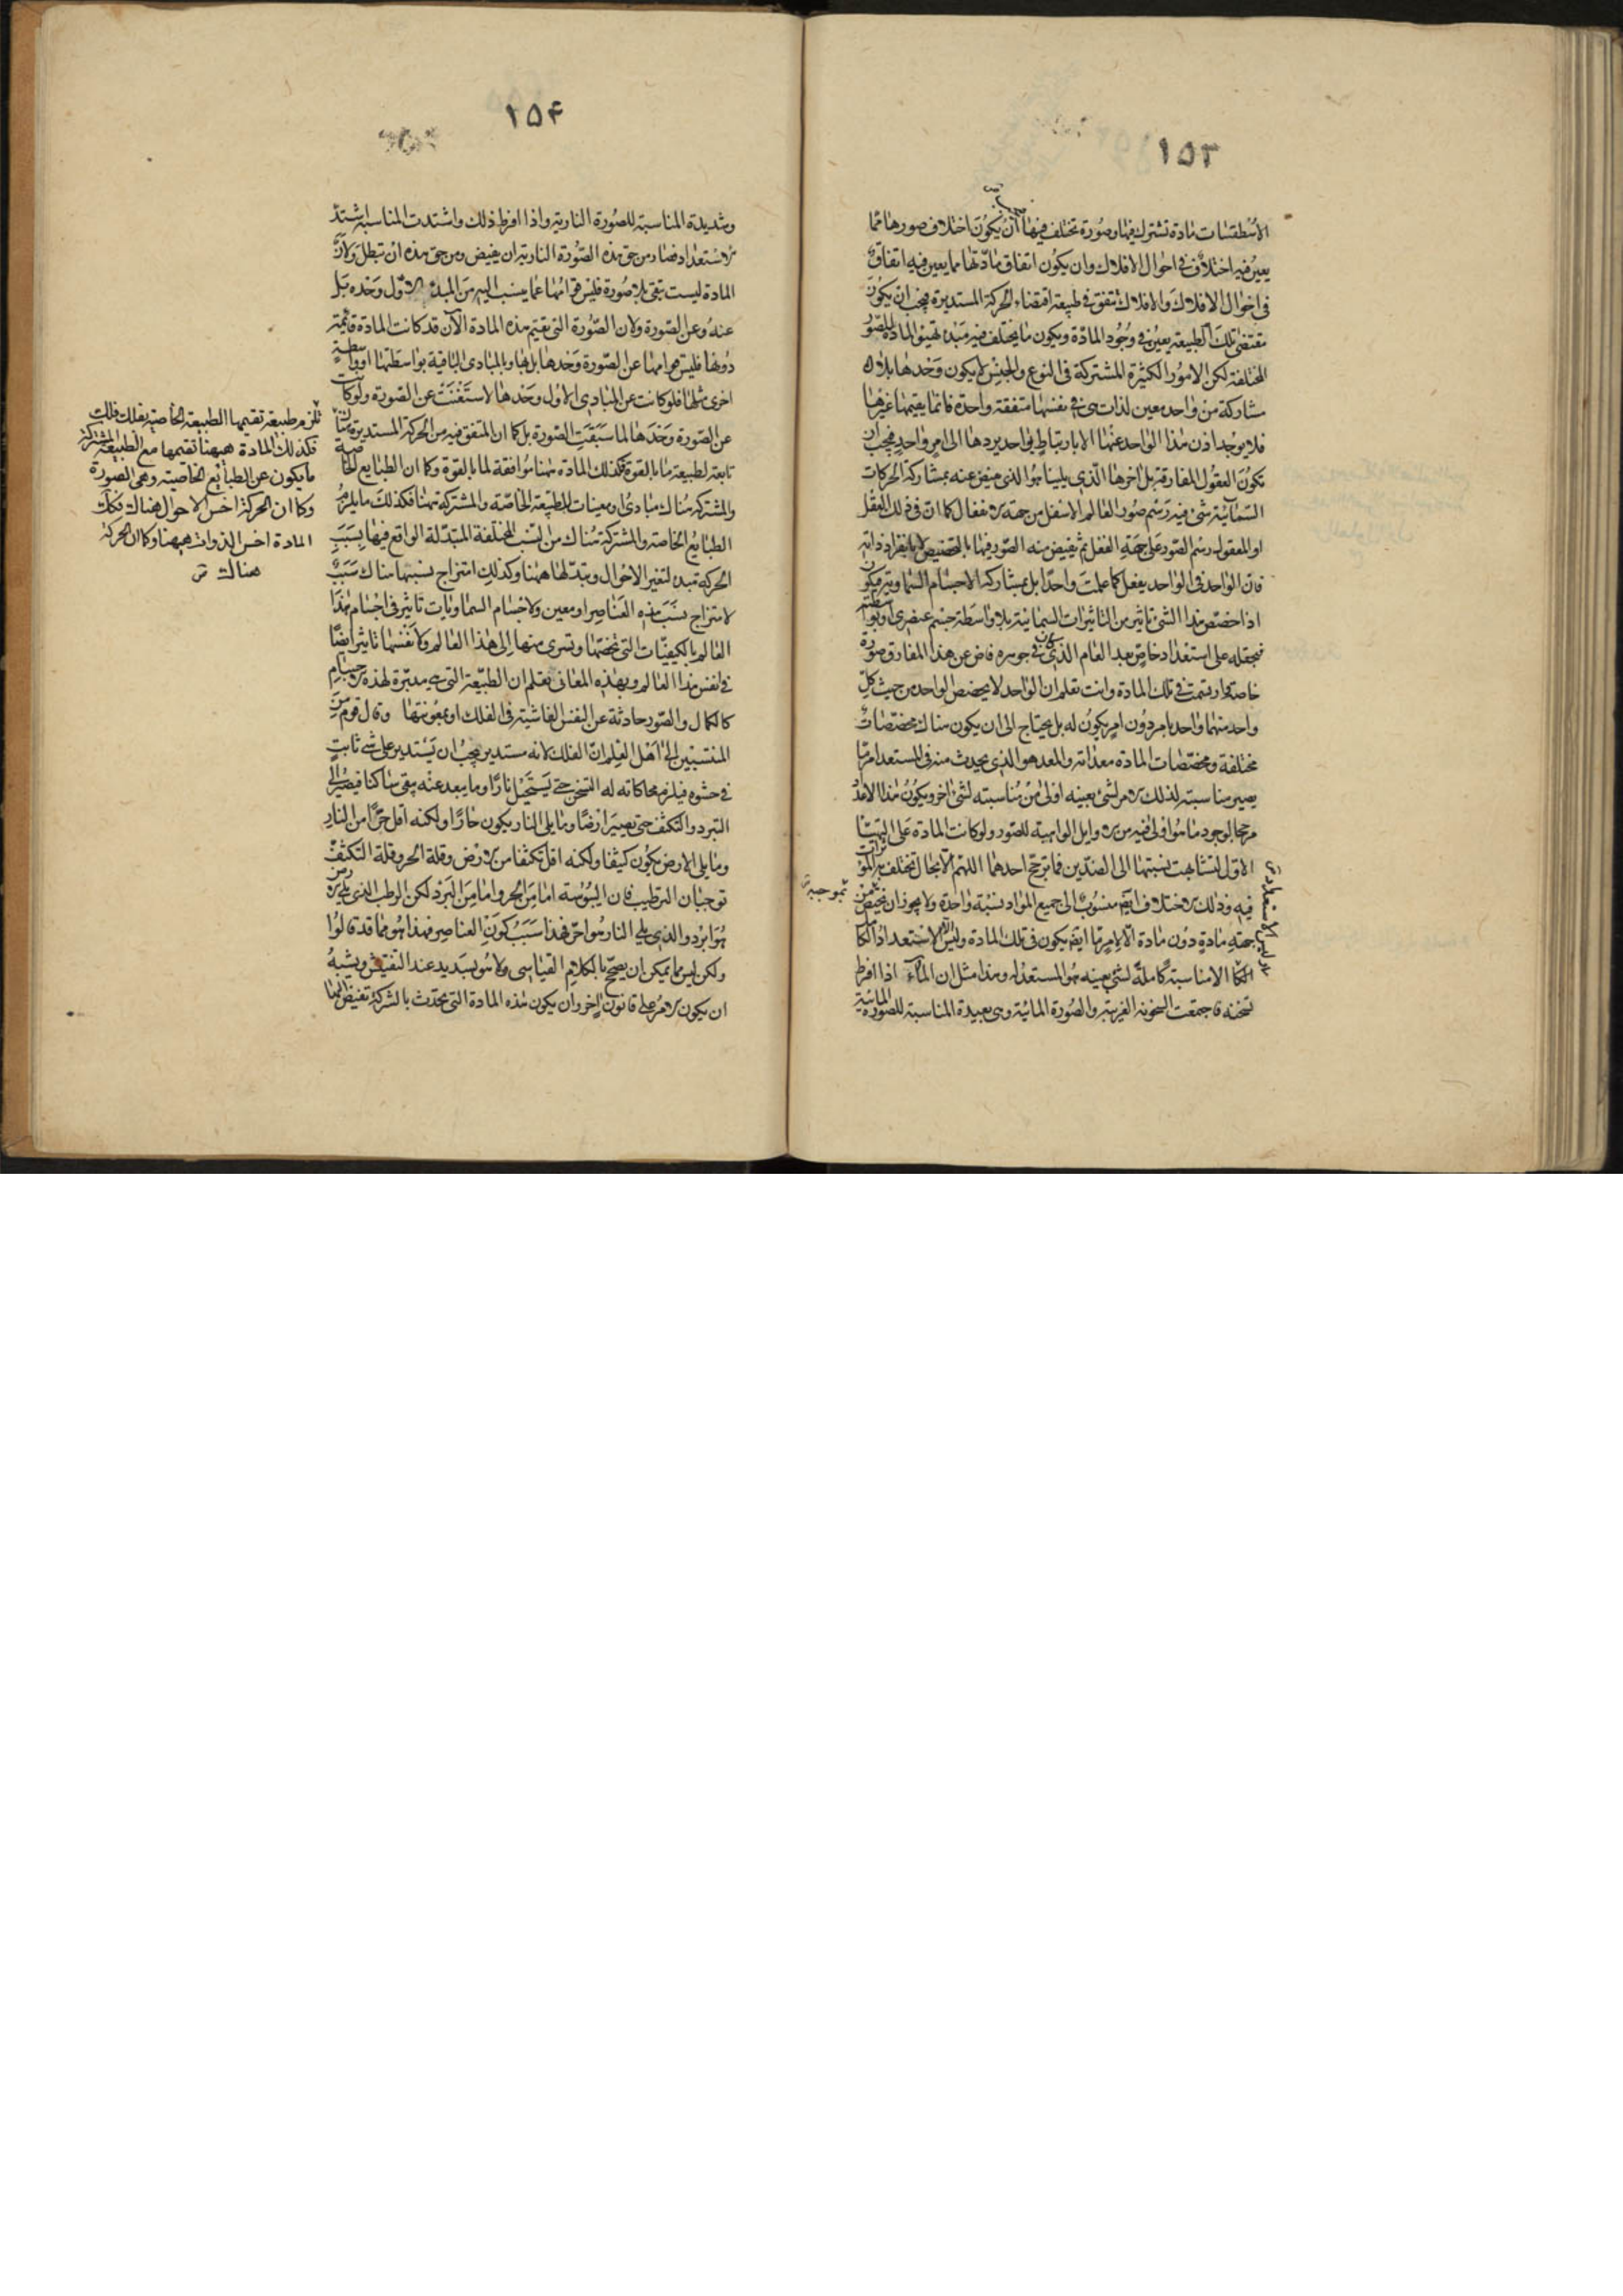 ١٥٣
الاسطقسات مادة تشترك فيها وصورة تختلف فيها ان يكون اختلاف صورها مما
يعين فيه اختلاف فى احوال الافلاك وان يكون اتفاق مادتها مما يعين فيه اتفاق
فى احوال الافلاك والافلاك تتفق فى طبيعة اقتضاء الحركة المستديرة فيجب ان يكون
مقتضى تلك الطبيعة يعين فى وجود المادة ويكون ما يختلف فيه مبدء تهيؤ المادة للصور
المختلفة لكن الامور الكثيرة المشتركة فى النوع والجنس لا يكون وحدها بلا
مشاركة من واحد معين لذات هى فى نفسها متفقة واحدة فانما يقيمها غيرها
فلا يوجد اذن هذا الواحد عنها الا بارتباط بواحد يردها الى امر واحد فيجب ان
تكون العقول المفارقة بل اخرها الذى يلينا هو الذى يفيض عنه بمشاركة الحركات
السمائية شىء فيه رسم صور العالم الاسفل من جهة الانفعال كما ان فى ذلك العقل
او العقول رسم الصور على جهة الفعل ثم يفيض منه الصور فيها بالتخصيص لا بانفراد ذاته
فان الواحد فى الواحد يفعل كما علمت واحدا بل بمشاركة الاجسام السماوية فيكون
اذا خصص هذا الشىء تاثير من التاثيرات السمائية بلا واسطة جسم عنصرى او بواسطة
فيجعله على استعداد خاص بعد العام الذى كان فى جوهره فاض عن هذا المفارق صورة
خاصة وارتسمت فى تلك المادة وانت تعلم ان الواحد لا يخصص الواحد من حيث كل
واحد منهما واحد بامر دون امر يكون له بل يحتاج الى ان يكون هناك مخصصات
مختلفة ومخصصات المادة معداته والمعد هو الذى يحدث منه فى المستعد امر ما
يصير مناسبته لذلك الامر لشىء بعينه اولى من مناسبته لشىء اخر ويكون هذا الاعداد
مرجحا لوجود ما هو اولى فيه من الاوايل الواهبة للصور ولو كانت المادة على التهيئا
الاول لتشابهت نسبتها الى الضدين فما ترجح احدهما اللهم الا بحال تختلف به المؤثرات
فيه وذلك الاختلاف ايضا منسوب الى جميع المواد نسبة واحدة ولا يجوز ان يختص
جهته مادة دون مادة الا لامر ما ايضا يكون فى تلك المادة وليس الا الاستعداد الكا
الكا الا مناسبة كاملة لشىء بعينه هو المستعد له وهذا مثل ان الماء اذا افرط
تسخنه فاجتمعت السخونة الغريبة والصورة المائية وهى بعيدة المناسبة للصورة المائية
بموجبه
١٥۴
وشديدة المناسبة للصورة النارية واذا افرط ذلك واشتدت المناسبة اشتد
الاستعداد فصار من حق هذه الصورة النارية ان يفيض ومن حق هذه ان تبطل ولان
المادة ليست تبقى بلا صورة فليس قوامها عما ينسب اليه من المبدء الاول وحده بل
عنه وعن الصورة ولان الصورة التى تقيم هذه المادة الآن قد كانت المادة قائمة
دونها فليس قوامها عن الصورة وحدها بل بها وبالمبادى الباقية بواسطتها او واسطة
اخرى مثلها فلو كانت عن المبادى الاول وحدها لاستغنت عن الصورة ولو كانت
عن الصورة وحدها لما سبقت الصورة بل كما ان المتفق فيه من الحركة المستديرة هناك
تابعة لطبيعة ما بالقوة فكذلك المادة ههنا موافقة لما بالقوة وكما ان الطبايع الخاصة
والمشتركة هناك مبادى او معينات للطبيعة الخاصة والمشتركة ههنا فكذلك ما يلزم
الطبايع الخاصة والمشتركة هناك من النسب المختلفة المتبدلة الواقع فيها بسبب
الحركة مبدء لتغير الاحوال وتبدلها ههنا وكذلك امتزاج نسبتها هناك سبب
لامتزاج نسب هذه العناصر او معين ولاجسام السماويات تاثير فى اجسام هذا
العالم بالكيفيات التى تخصها وتسرى منها الى هذا العالم ولانفسها تاثير ايضا
فى انفس هذا العالم وبهذه المعانى تعلم ان الطبيعة التى هى مدبرة لهذه الاجسام
كالكمال والصور حادثة عن النفس الفاشية فى الفلك او بمعونتها وقال قوم من
المنتسبين الى اهل العلم ان الفلك لانه مستدير يجب ان يستدير على شىء ثابت
فى حشوه فيلزم محاكاته له التسخن حتى يستحيل نارا وما يبعد عنه يبقى ساكنا فيصير الى
التبرد والتكثف حتى يصير ارضا وما يلى النار يكون حارا ولكنه اقل حرا من النار
وما يلى الارض يكون كثيفا ولكنه اقل تكثفا من الارض وقلة الحر وقلة التكثف
توجبان الترطيب فان اليبوسة اما من الحر واما من البرد لكن الرطب الذى يلى الارض
هو ابرد والذى يلى النار هو احر فهذا سبب كون العناصر فهذا هو مما قد قالوا
ولكن ليس مما يمكن ان يصحح بالكلام القياسى ولا هو بسديد عند التفتيش ويشبه
ان يكون الامر على قانون اخر وان يكون هذه المادة التى تحدث بالشركة تفيض اليها
تلزم طبيعة تقيمها الطبيعة الخاصة بفلك فلك
فكذلك المادة ههنا تقيمها مع الطبيعة المشتركة
ما يكون عن الطبائع الخاصية وهى الصورة
وكما ان الحركة اخس الاحوال هناك فكك
المادة اخس الذوات ههنا وكما ان الحركة
هناك